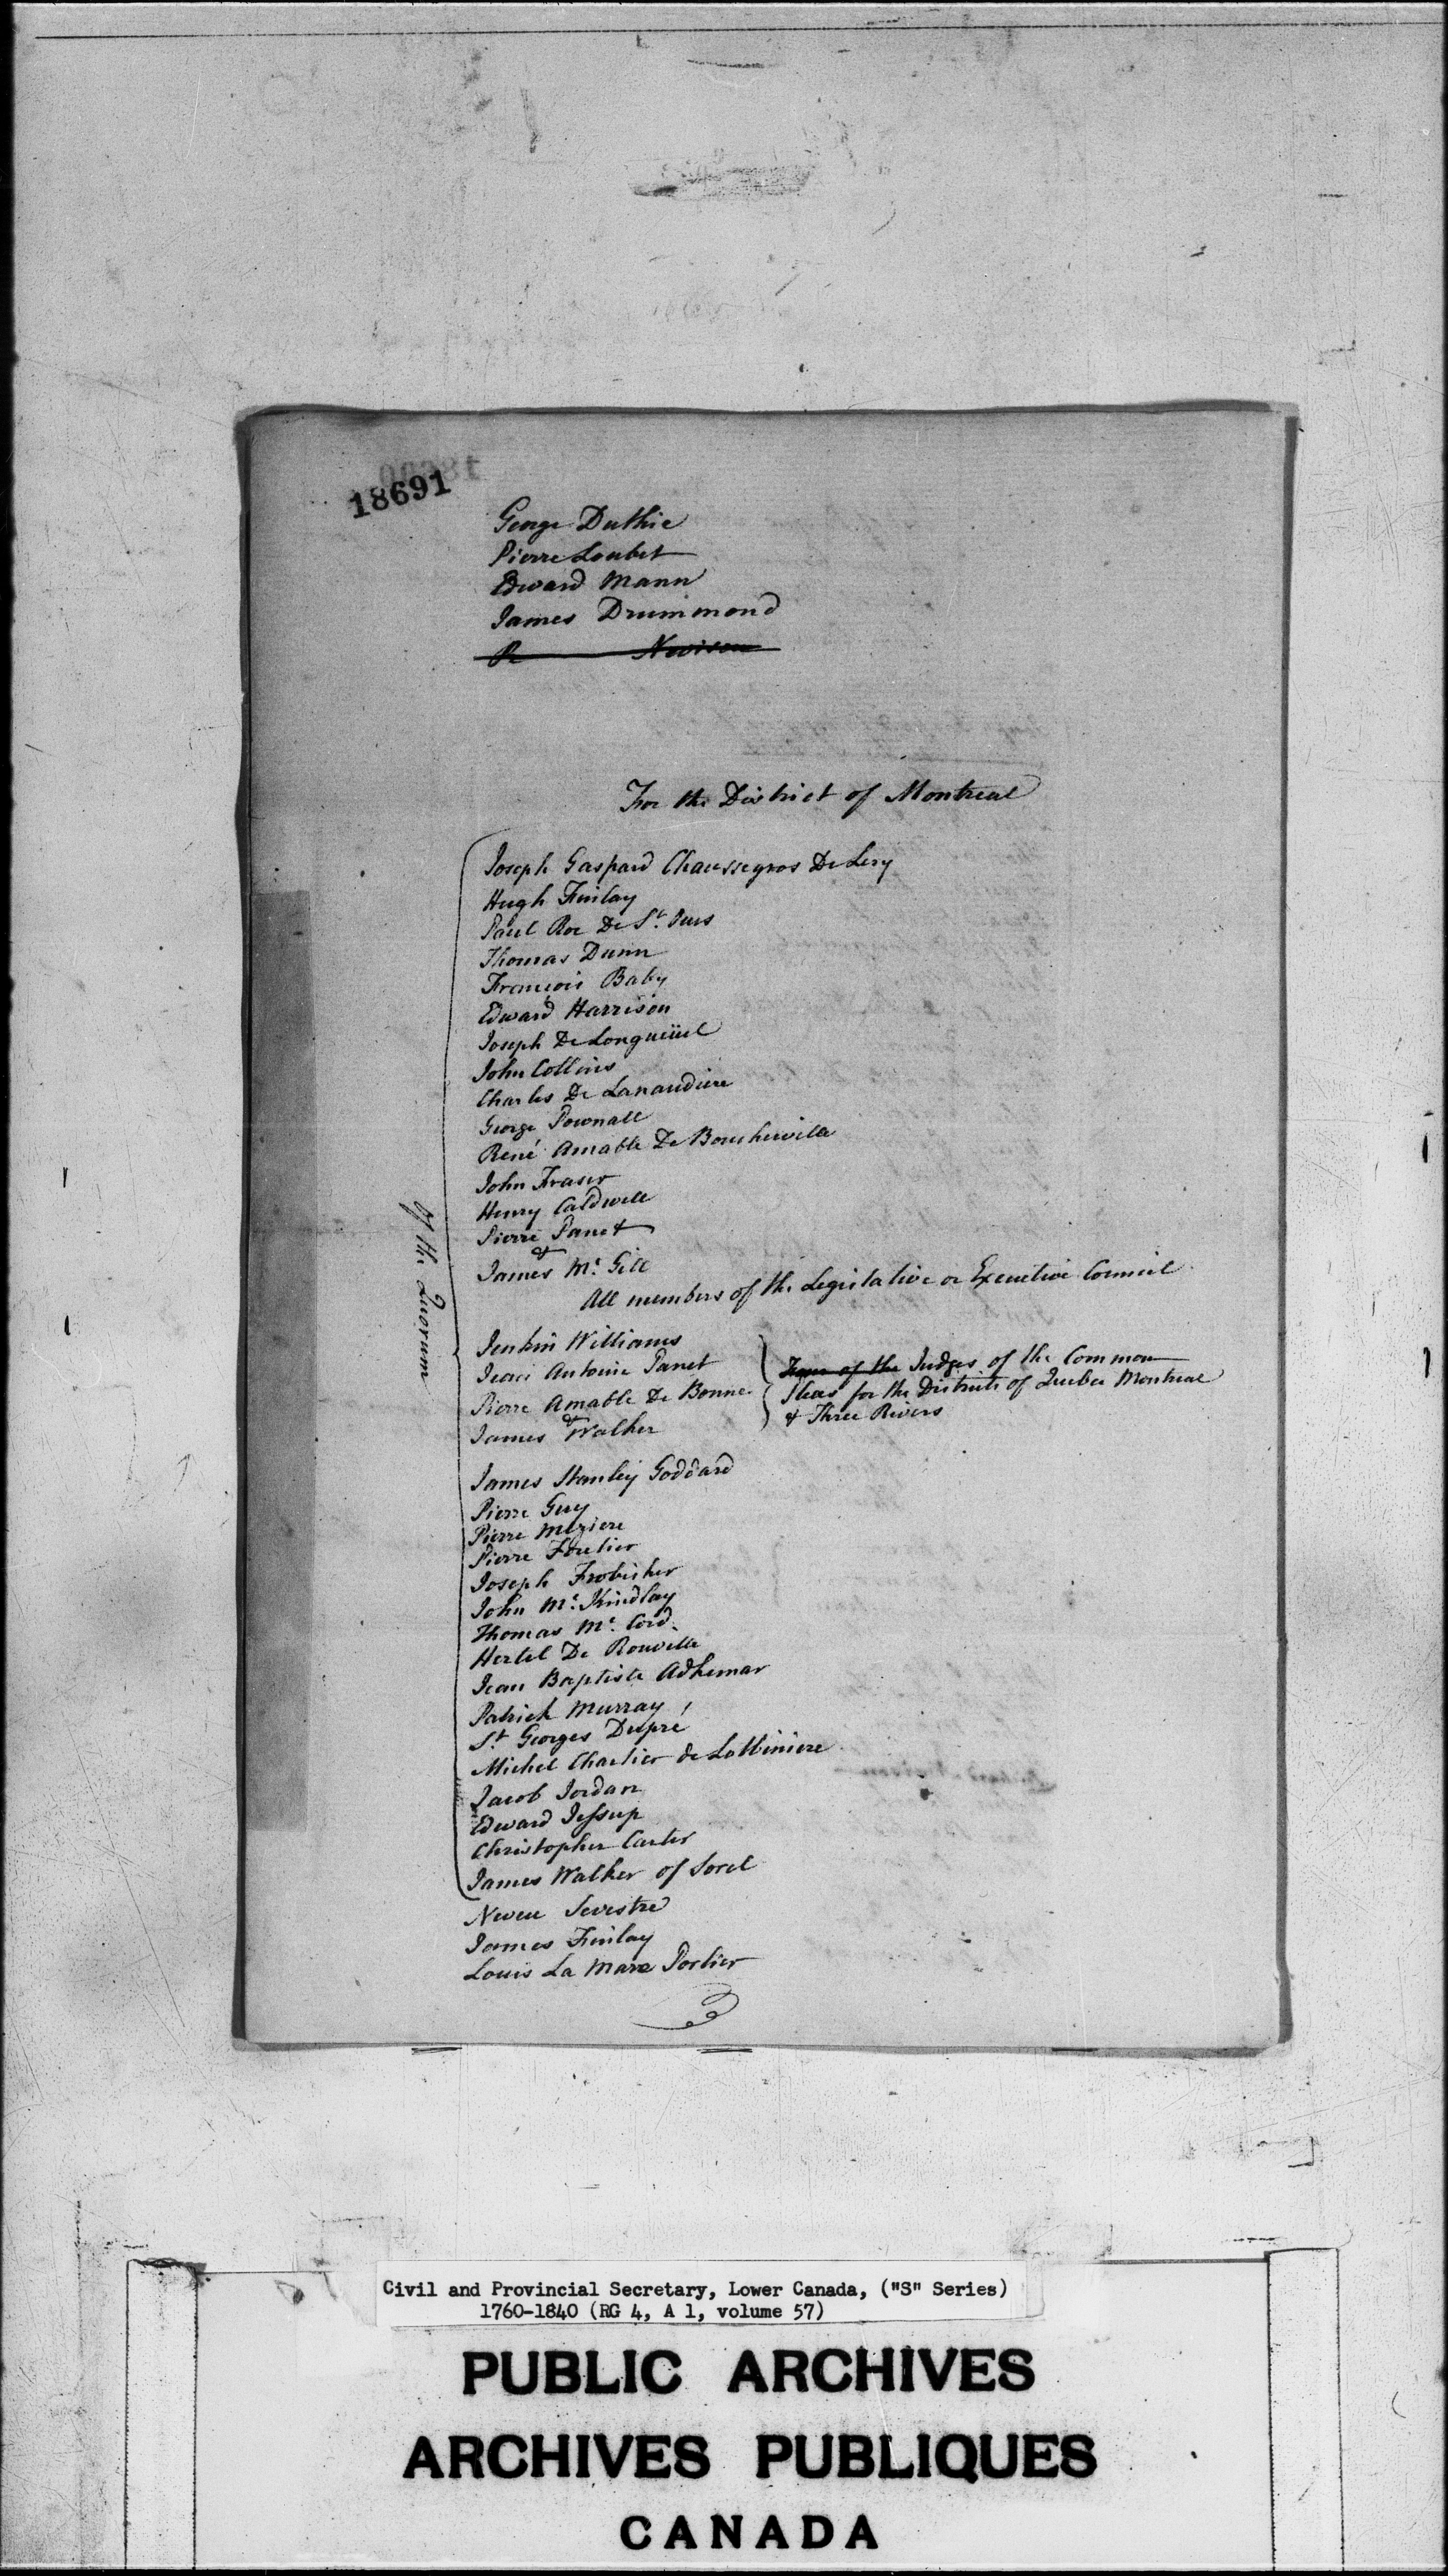 18691
George Duthie
Pierre Loubet
Edward Mann
James Drummond
Nevison
For the District of Montreal
of the Quorum
Joseph Gaspard Chaussegros De Lery
Hugh Finlay
Paul Roc De St. Ours
Thomas Dunn
François Baby
Edward Harrison
Joseph De Longueüil
John Collins
Charles De Lanaudiere
George Pownall
René Amable De Boucherville
John Fraser
Henry Caldwell
Pierre Panet
&
James Mc. Gill
All members of the Legislative or Executive Council
Jenkin Williams
Jean Antoine Panet
Pierre Amable De Bonne
&
James Walker
Four of the Judges of the Common
Pleas for the Districts of Quebec Montreal
& Three Rivers
James Stanley Goddard
Pierre Guy
Pierre Meziere
Pierre Foretier
Joseph Frobisher
John Mc. Kindlay
Thomas Mc. Cord
Hertel De Rouville
Jean Baptiste Adhemar
Patrick Murray
St. Georges Dupré
Michel Chartier de Lotbiniere
Jacob Jordan
Edward Jessup
Christopher Carter
James Walker of Sorel
Neveu Sevestre
James Finlay
Louis La Mare Porlier
Civil and Provincial Secretary, Lower Canada, ("S" Series)
1760-1840 (RG 4, A 1, volume 57)
PUBLIC ARCHIVES
ARCHIVES PUBLIQUES
CANADA